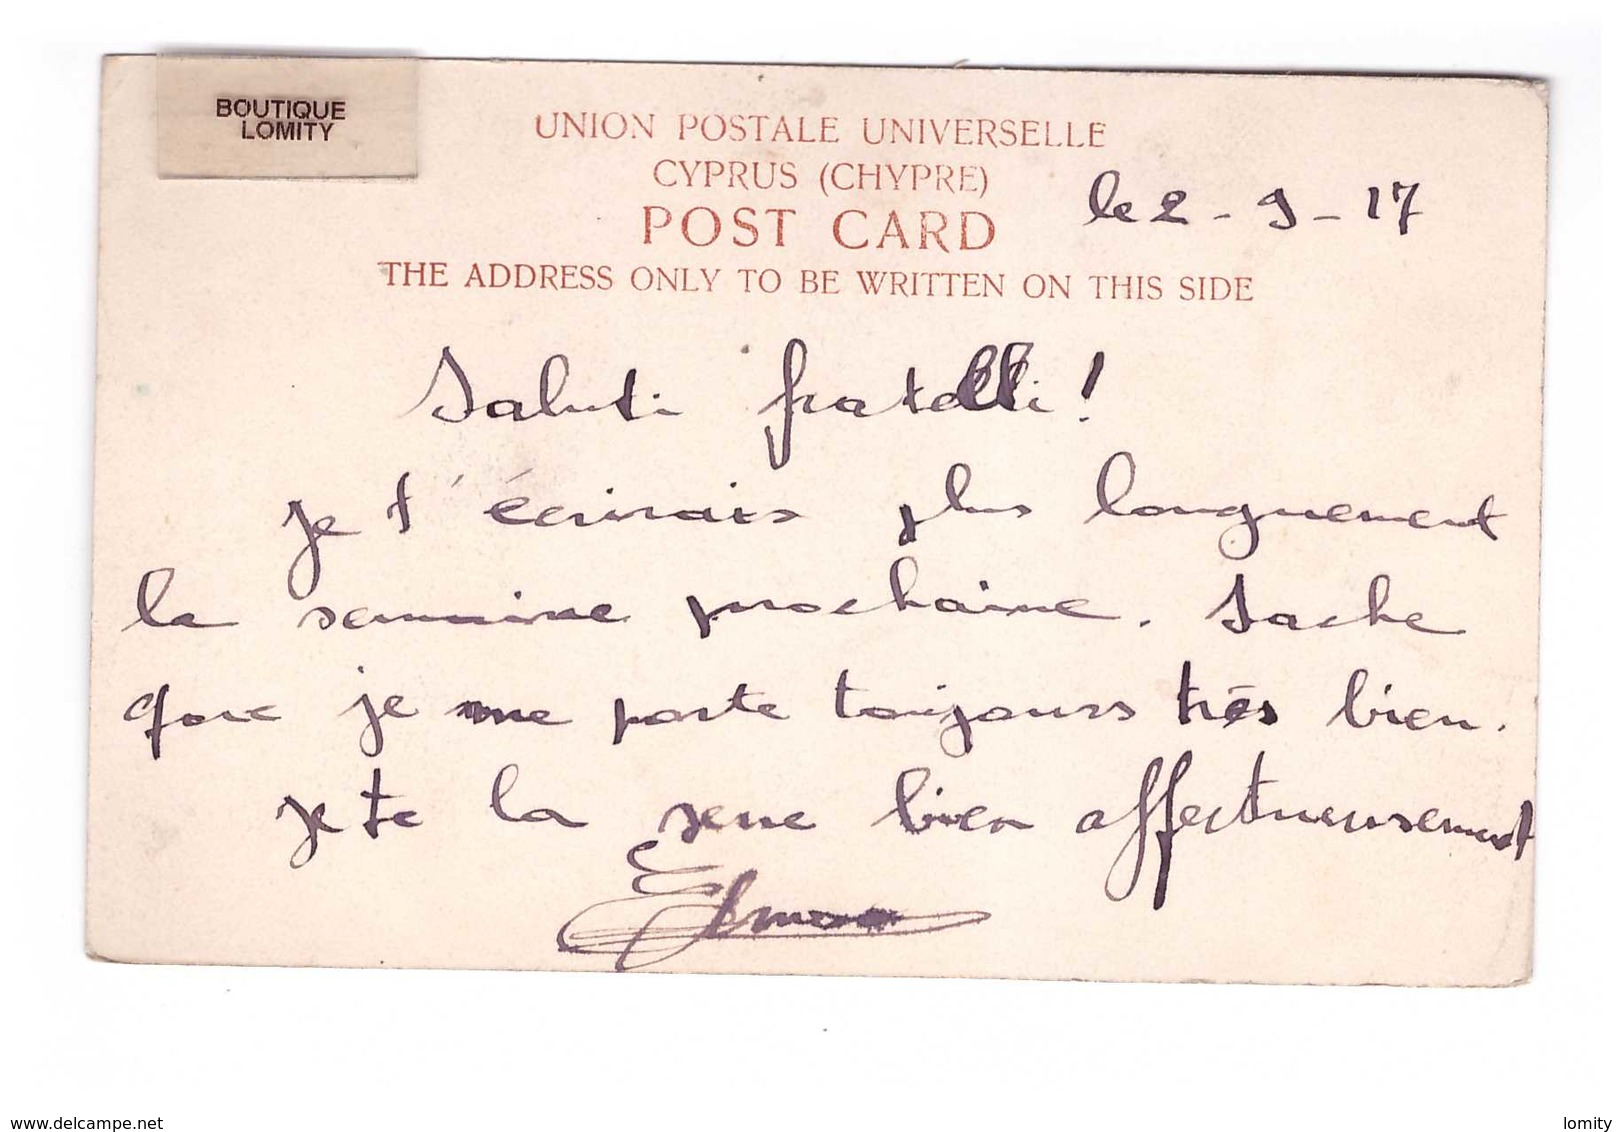 BOUTIQUE
LOMITY
UNION POSTALE UNIVERSELLE
CYPRUS (CHYPRE)
POST CARD
THE ADDRESS ONLY TO BE WRITTEN ON THIS SIDE
le 2 - 9 - 17
Saluti fratelli !
je t'écrirais plus longuement
la semaine prochaine. Sache
que je me porte toujours très bien.
je te la serre bien affectueusement
www.delcampe.net
lomity